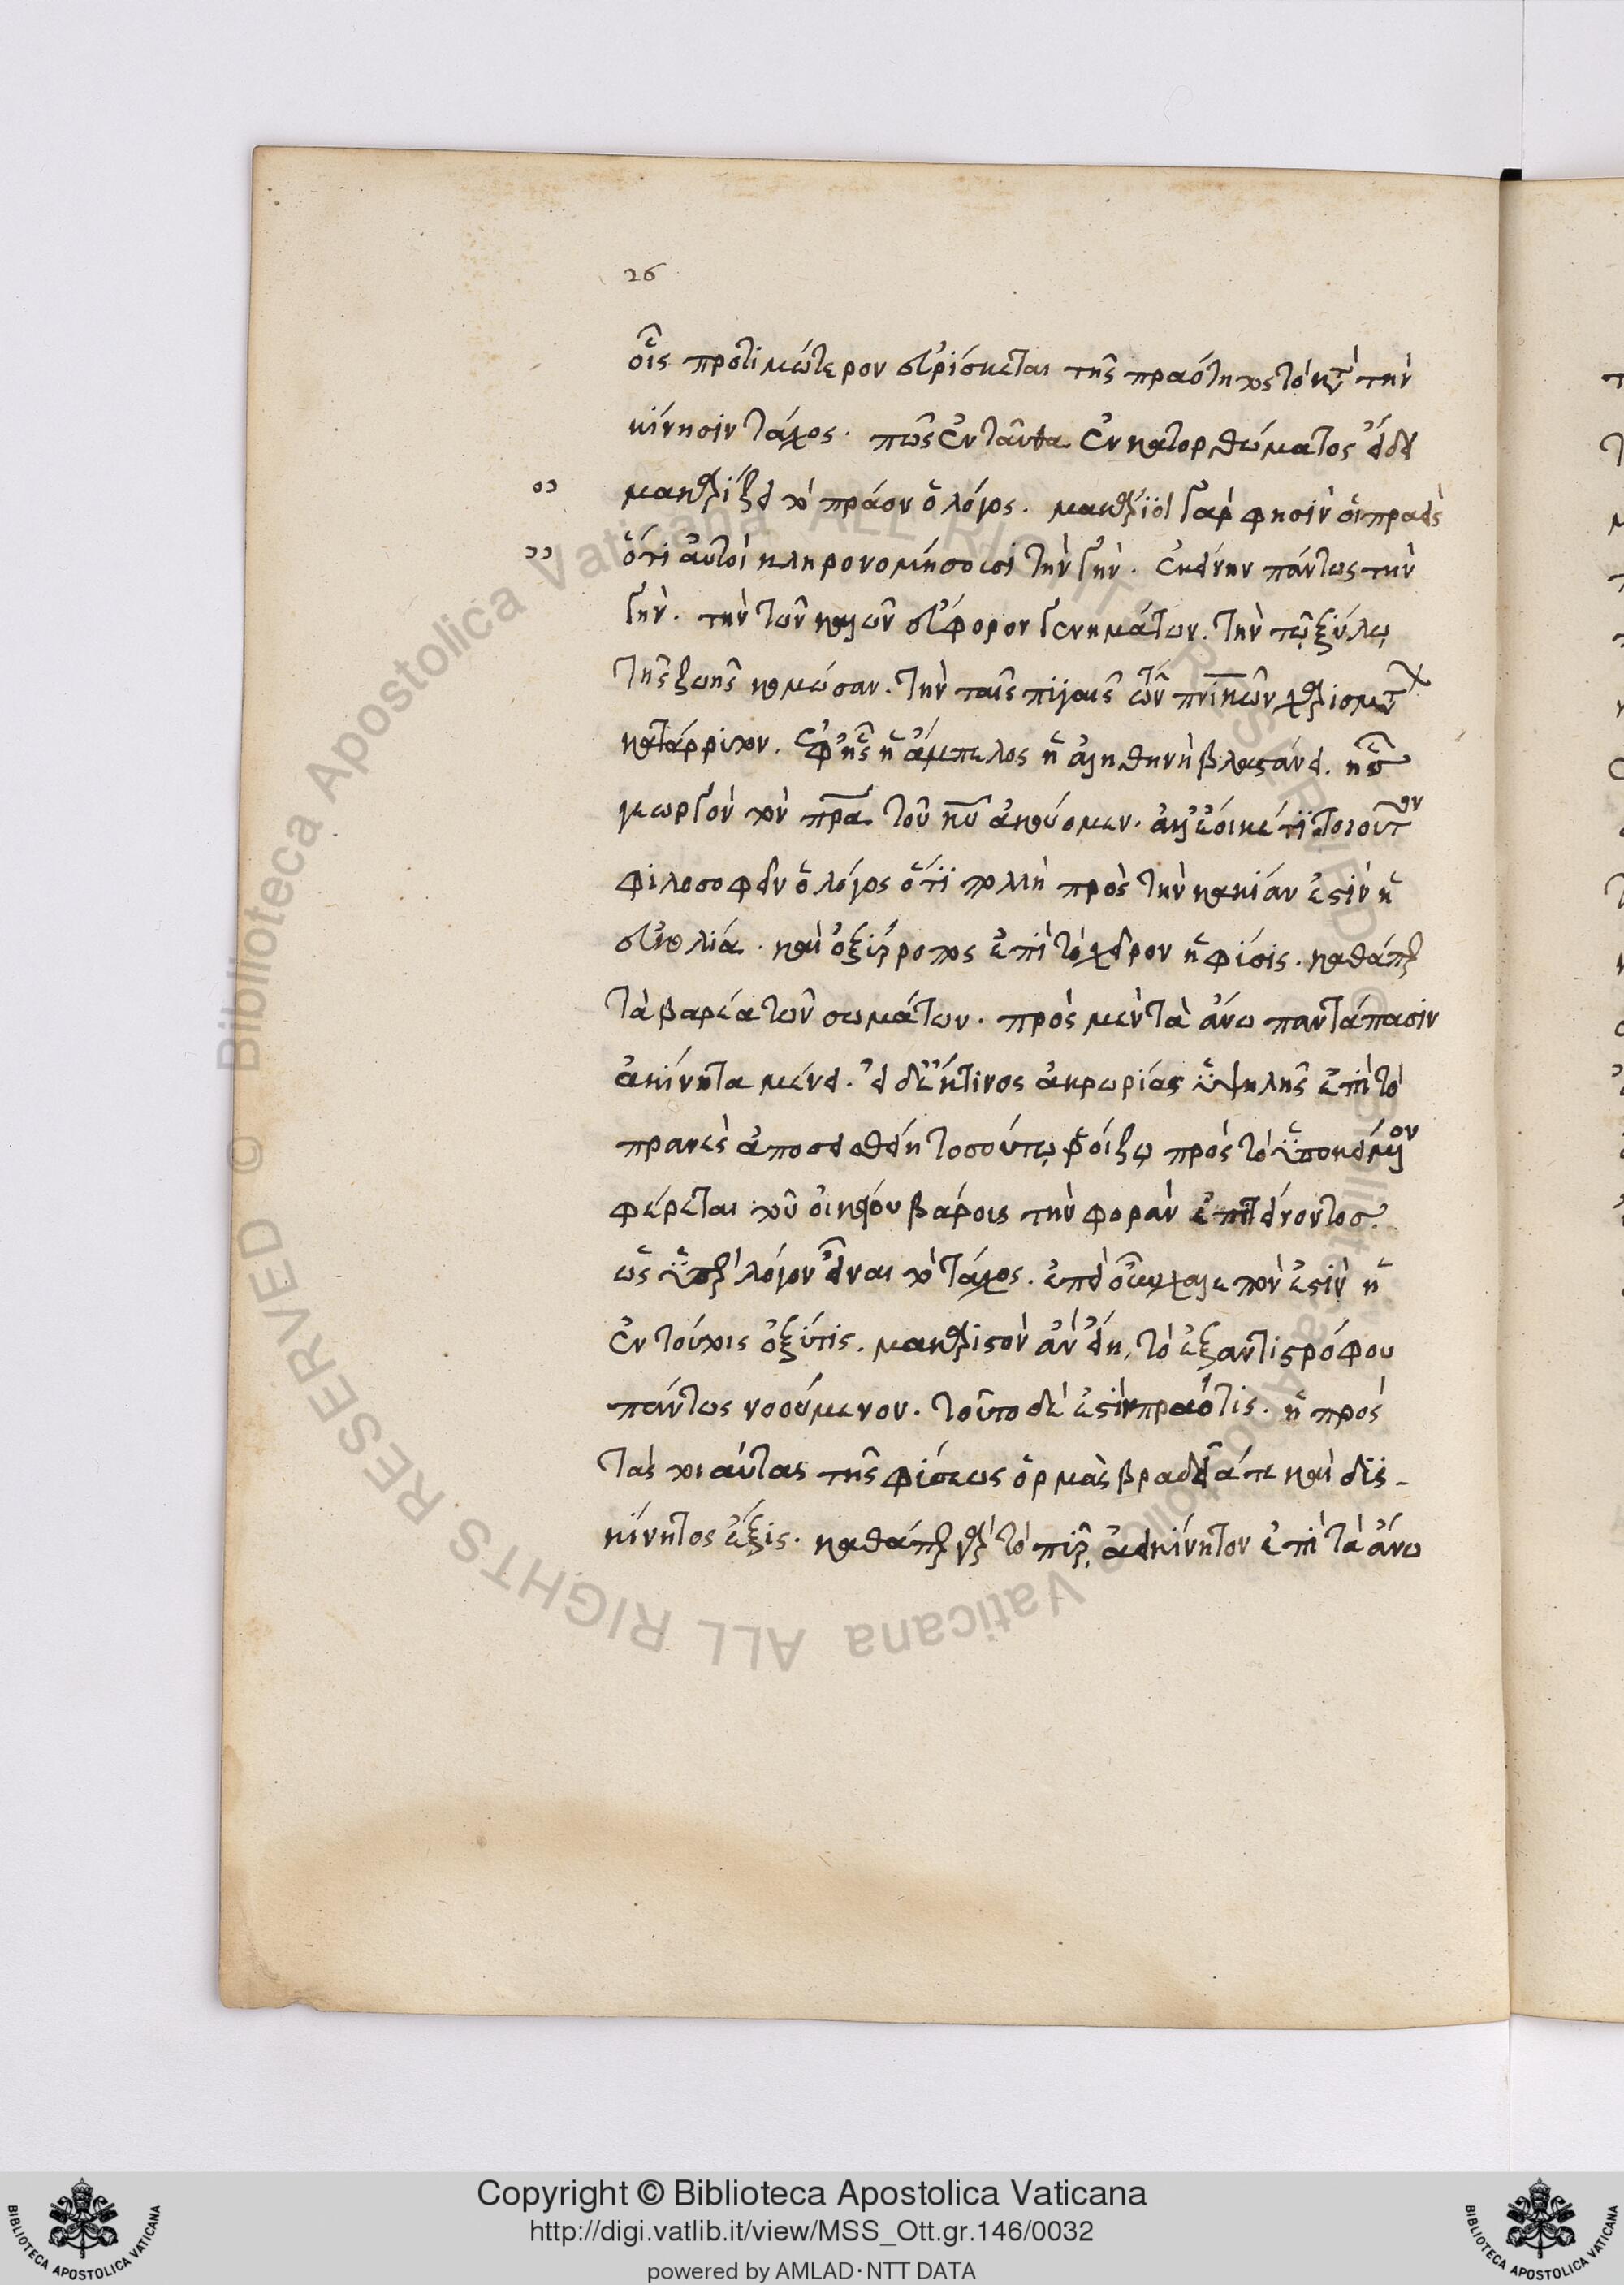 26
οἷς προτιμώτερον εὑρίσκεται τῆς πραότητος τὸ κατὰ τὴν
κίνησιν τάχος. πῶς ἐνταῦθα ἐν κατορθώματος εἴδει
μακαρίζει τὸ πρᾶον ὁ λόγος. μακάριοι γάρ φησιν οἱ πραεῖς
ὅτι αὐτοὶ κληρονομήσουσι τὴν γῆν. ἐκείνην πάντως τὴν
γῆν. τὴν τῶν καλῶν εὔφορον γεννημάτων. τὴν τῷ ξύλῳ
τῆς ζωῆς κομῶσαν. τὴν ταῖς πηγαῖς τῶν πνικῶν χαρισμάτων
κατάρρυτον. ἐφ' ἧς ἡ ἄμπελος ἡ ἀληθινὴ βλαστάνει. ἧς
γεωργὸν τὸν πρα τοῦ κυ ἀκούομεν. ἀλλ' ἔοικέ τι τοιοῦτον
φιλοσοφεῖν ὁ λόγος ὅτι πολλὴ πρὸς τὴν κακίαν ἐστὶν ἡ
εὐκολία. καὶ ὀξύρροπος ἐπὶ τὸ χεῖρον ἡ φύσις. καθάπερ
τὰ βαρέα τῶν σωμάτων. πρὸς μὲν τὰ ἄνω παντάπασιν
ἀκίνητα μένει. εἰ δὲ ἔκ τινος ἀκρωρίας ὑψηλῆς ἐπὶ τὸ
πρανὲς ἀποσεισθείη τοσούτῳ ῥοίζῳ πρὸς τὸ ὑποκείμενον
φέρεται τοῦ οἰκείου βάρους τὴν φορὰν ἐπιτείνοντος.
ὡς ὑπὲρ λόγον εἶναι τὸ τάχος. ἐπεὶ οὖν χαλεπὸν ἐστὶν ἡ
ἐν τούτοις ὀξύτις. μακαριστὸν ἂν εἴη, τὸ ἐξ ἀντιστρόφου
πάντως νοούμενον. τοῦτο δέ ἐστιν πραότις. ἡ πρὸς
τὰς τοιαύτας τῆς φύσεως ὁρμὰς βραδεῖά τε καὶ δυσ-
κίνητος ἕξις. καθάπερ γὰρ τὸ πῦρ, ἀεικίνητον ἐπὶ τὰ ἄνω
Copyright © Biblioteca Apostolica Vaticana
http://digi.vatlib.it/view/MSS_Ott.gr.146/0032
powered by AMLAD·NTT DATA